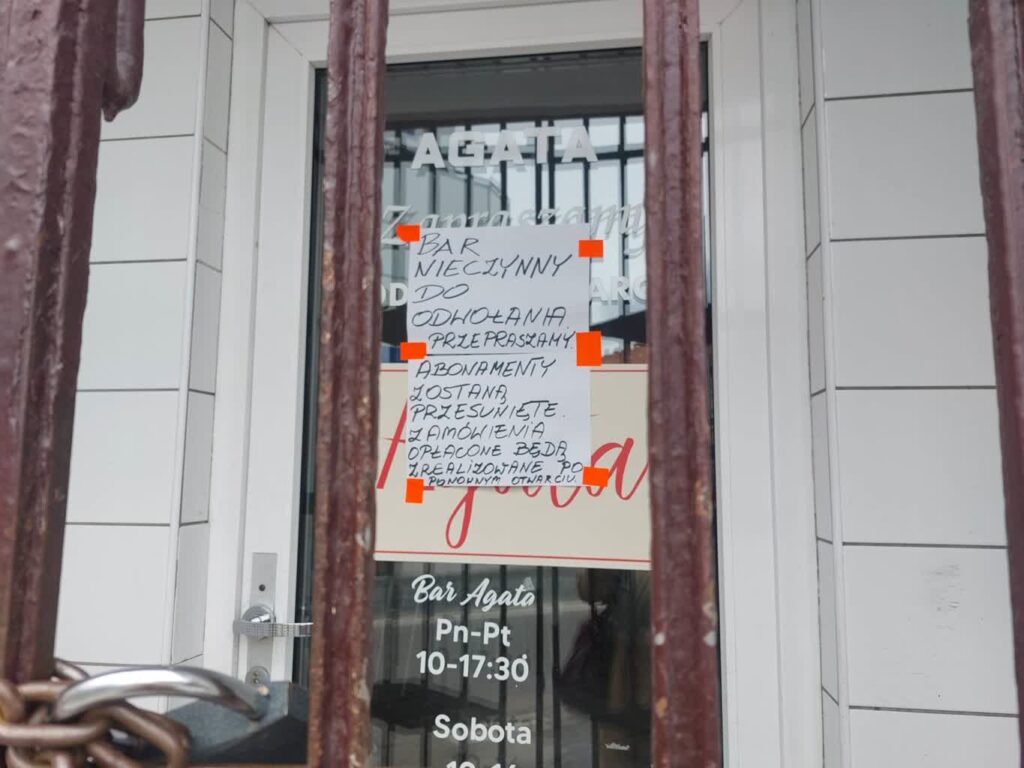 AGATA
Zapraszamy
BAR
NIECZYNNY
DO
ODWOŁANIA.
PRZEPRASZAMY.
ABONAMENTY
ZOSTANĄ
PRZESUNIĘTE.
ZAMÓWIENIA
OPŁACONE BĘDĄ
ZREALIZOWANE PO
PONOWNYM OTWARCIU.
Agata
Bar Agata
Pn-Pt
10-17:30
Sobota